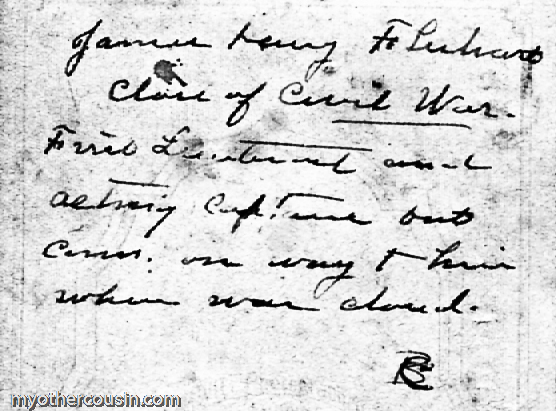 James Henry F
Close of Civil War.
First Lieutenant and
acting Captain but
Com. on way to him
when war closed.
myothercousin.com